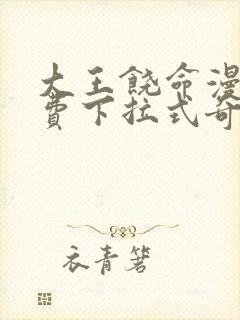 大王饶命漫
费下拉式奇
衣青箬